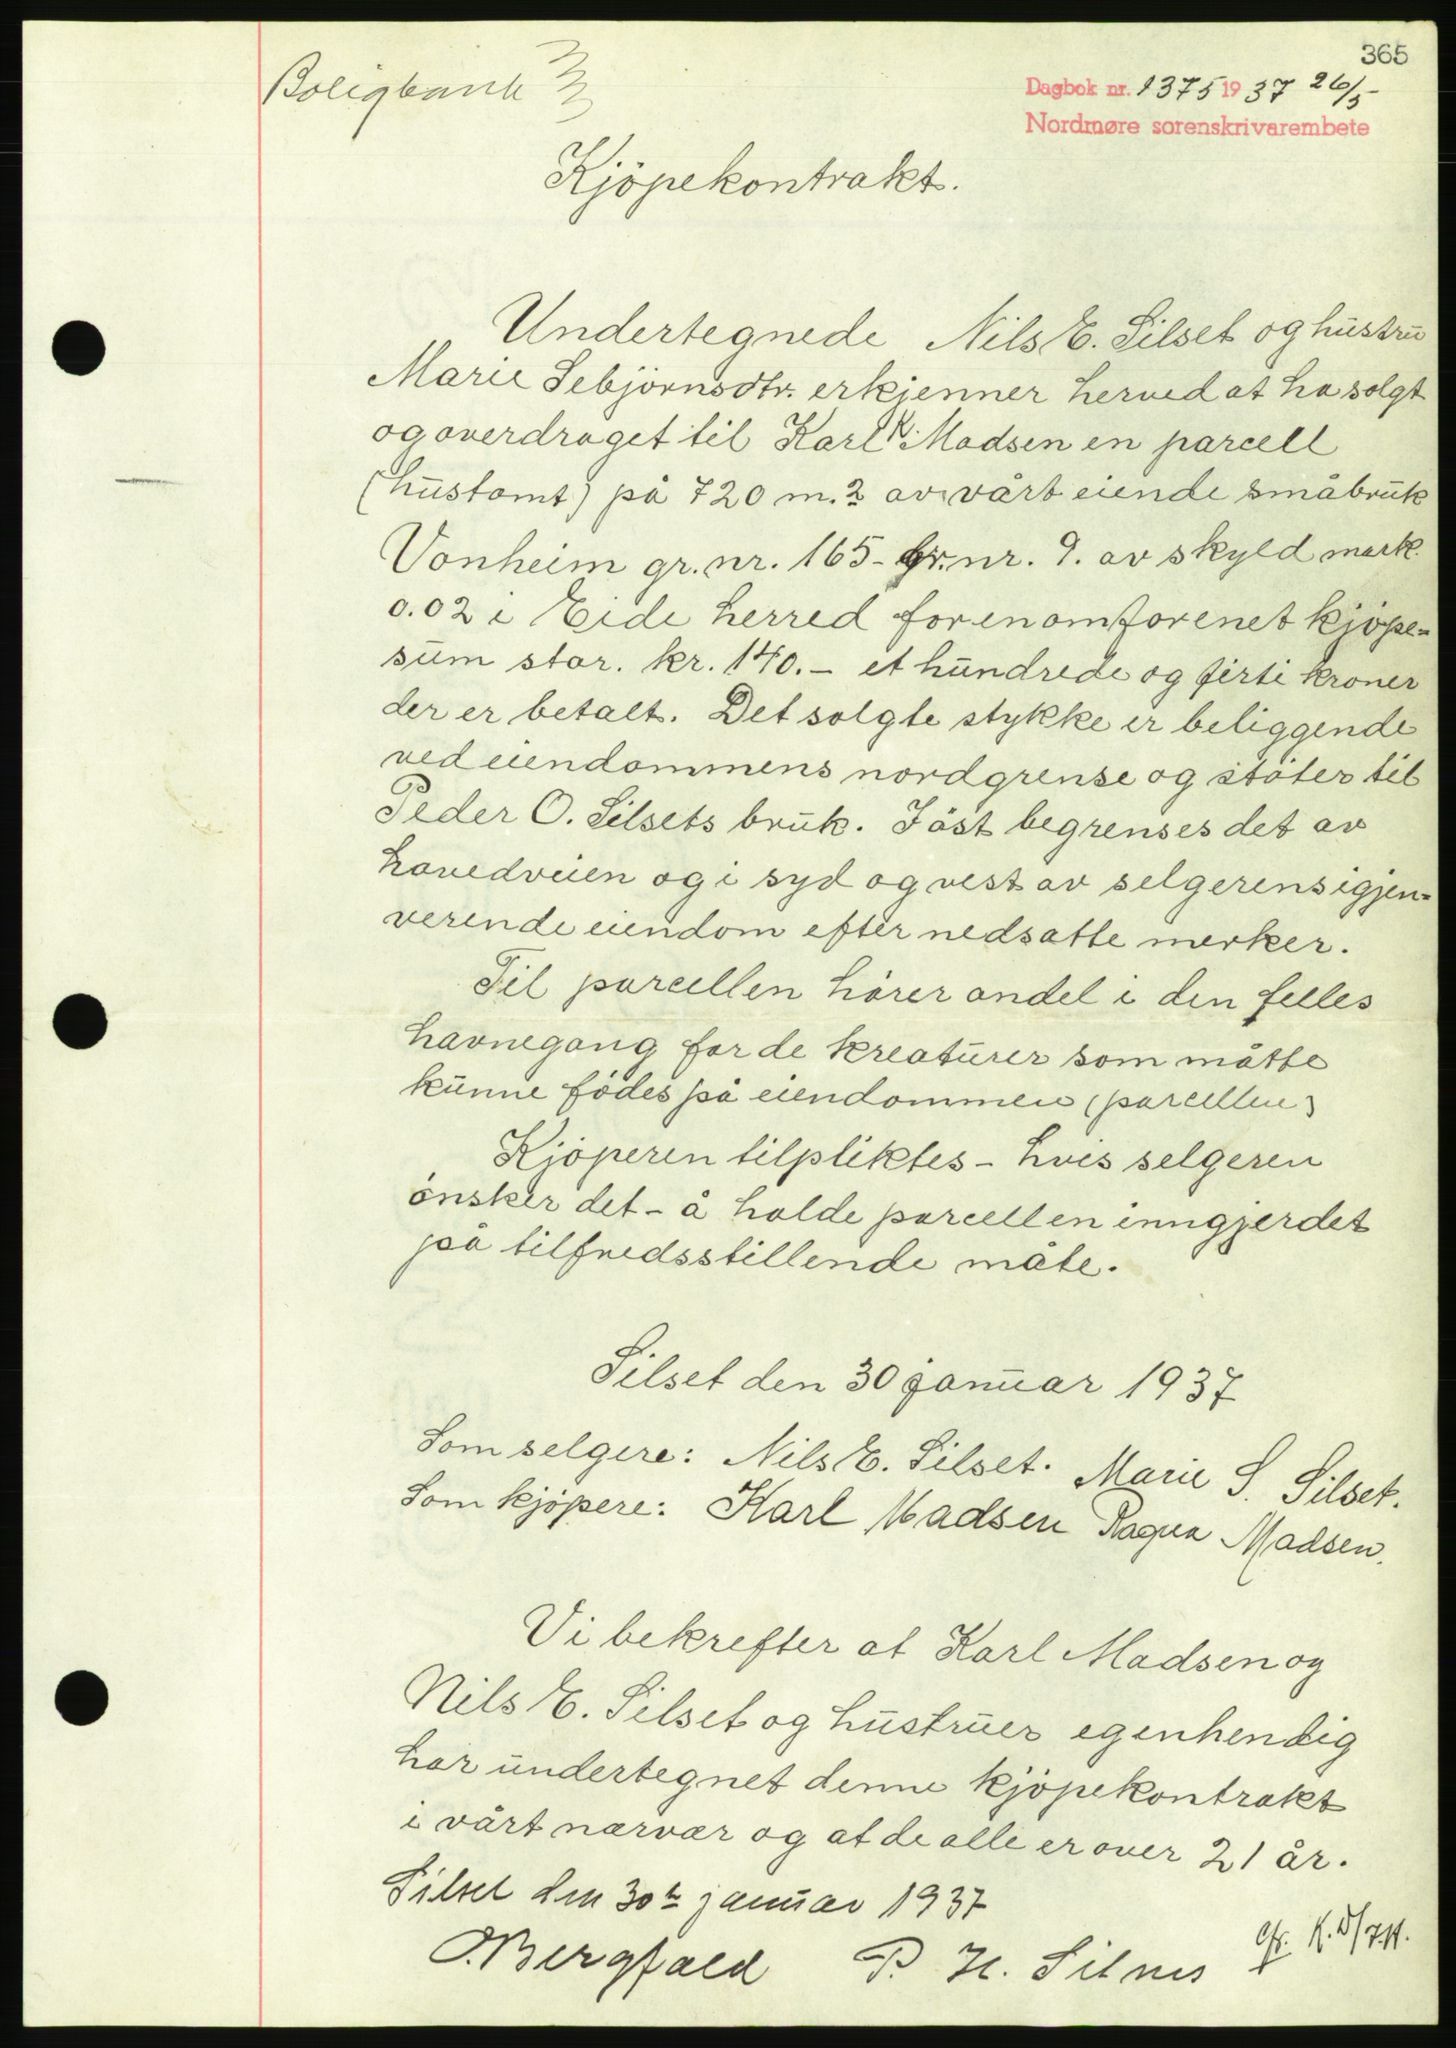 365
Boligbank
Dagbok nr. 1375 1937 26/5
Nordmøre sorenskrivarembete
Kjöpekontrakt.
Undertegnede Nils E. Silset og hustru
Marie Sebjörnsdtr. erkjenner herved at ha solgt
og overdraget til Karl K. Madsen en parcell
(hustomt) på 720 m.2 av vårt eiende småbruk
Vonheim gr. nr. 165 - br. nr. 9. av skyld mark
0.02 i Eide herred for en omforenet kjöpe=
sum stor. kr. 140.- et hundrede og firti kroner
der er betalt. Det solgte stykke er beliggende
ved eiendommens nordgrense og stöter til
Peder O. Silsets bruk. I öst begrenses det av
hovedveien og i syd og vest av selgerens igjen=
verende eiendom efter nedsatte merker.
Til parcellen hörer andel i den felles
havnegang for de kreaturer som måtte
kunne födes på eiendommen (parcellen)
Kjöperen tilpliktes - hvis selgeren
önsker det - å holde parcellen inngjerdet
på tilfredsstillende måte.
Silset den 30 januar 1937
Som selgere: Nils E. Silset. Marie S. Silset.
Som kjöpere: Karl Madsen Ragna Madsen.
Vi bekrefter at Karl Madsen og
Nils E. Silset og hustruer egenhendig
har undertegnet denne kjöpekontrakt
i vårt nærvær og at de alle er over 21 år.
Silset den 30te januar 1937
O. Bergfald P. H. Silnes